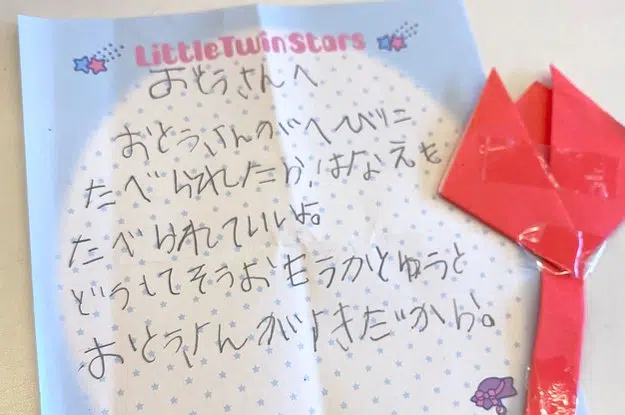 LittleTwinStars
おとうさんへ
おとうさんがへびに
たべられたら、はなえも
たべられていいよ。
どうしてそうおもうかとゆうと
おとうさんがすきだから。